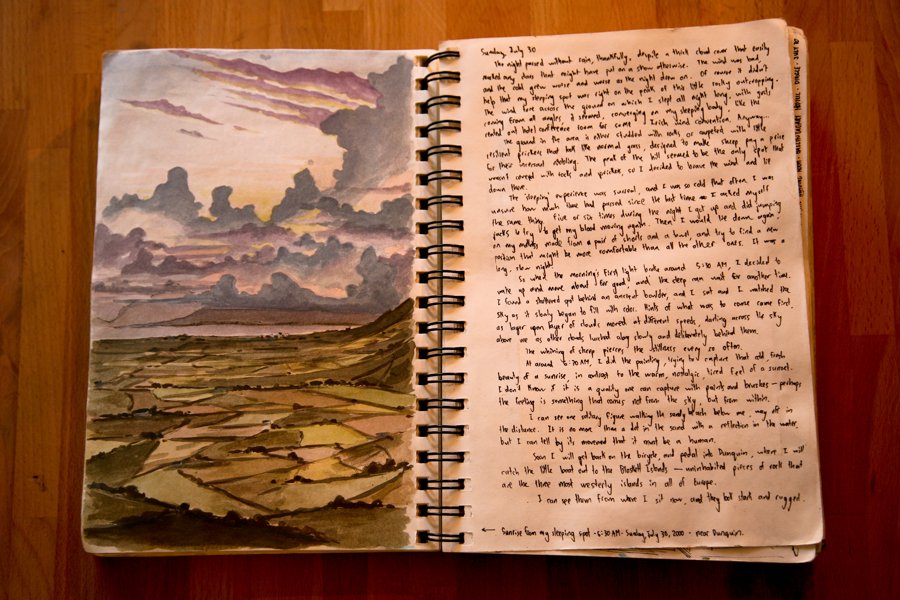 Sunday, July 30
The night passed without rain, thankfully, despite a thick cloud cover that easily
masked any stars that might have put on a show otherwise. The wind was bad,
and the cold grew worse and worse as the night drew on. Of course it didn't
help that my sleeping spot was right on the peak of this little rocky outcropping.
The wind tore across the ground on which I slept all night long, with gusts
coming from all angles, it seemed, converging on my sleeping body like the
rented out hotel conference room for some Irish wind convention. Anyway...
The ground in the area is either studded with rocks or carpeted with little
resilient prickers that bolt like normal grass, designed to make sheep pay a price
for their incessant nibbling. The peak of the hill seemed to be the only spot that
wasn't covered with rocks and prickers, so I decided to brave the wind and lie
down there.
The "sleeping" experience was surreal, and I was so cold that often I was
unsure how much time had passed since the last time I asked myself
the same thing. Five or six times during the night I got up and did jumping
jacks to try to get my blood moving again. Then I would lie down again
on my mattress made from a pair of shorts and a towel and try to find a new
position that might be more comfortable than all the other ones. It was a
long, slow night.
So when the morning's first light broke around 5:30 AM, I decided to
wake up and move about for good and the sleep can wait for another time.
I found a sheltered spot behind an ancient boulder, and I sat and I watched the
sky as it slowly began to fill with color. Hints of what was to come came first,
as layer upon layer of clouds moved at different speeds, darting across the sky
above me as other clouds lurched along slowly and deliberately behind them.
The whining of sheep pierces the stillness every so often.
At around 6:30 AM, I did the painting, trying to capture that cold, fresh
beauty of a sunrise, in contrast to the warm, nostalgic, tired feel of a sunset.
I don't know if it is a quality one can capture with paints and brushes — perhaps
the feeling is something that comes not from the sky, but from within.
I can see one solitary figure walking the sandy beach below me, way off in
the distance. It is no more than a dot in the sand with a reflection in the water,
but I can tell by its movement that it must be a human.
Soon I will get back on the bicycle, and pedal into Dunquin, where I will
catch the little boat out to the Blaskett Islands — uninhabited pieces of rock that
are the three most westerly islands in all of Europe.
I can see them from where I sit now, and they look stark and rugged.
← Sunrise from my sleeping spot · 6:30 AM · Sunday, July 30, 2000 · near Dunquin.